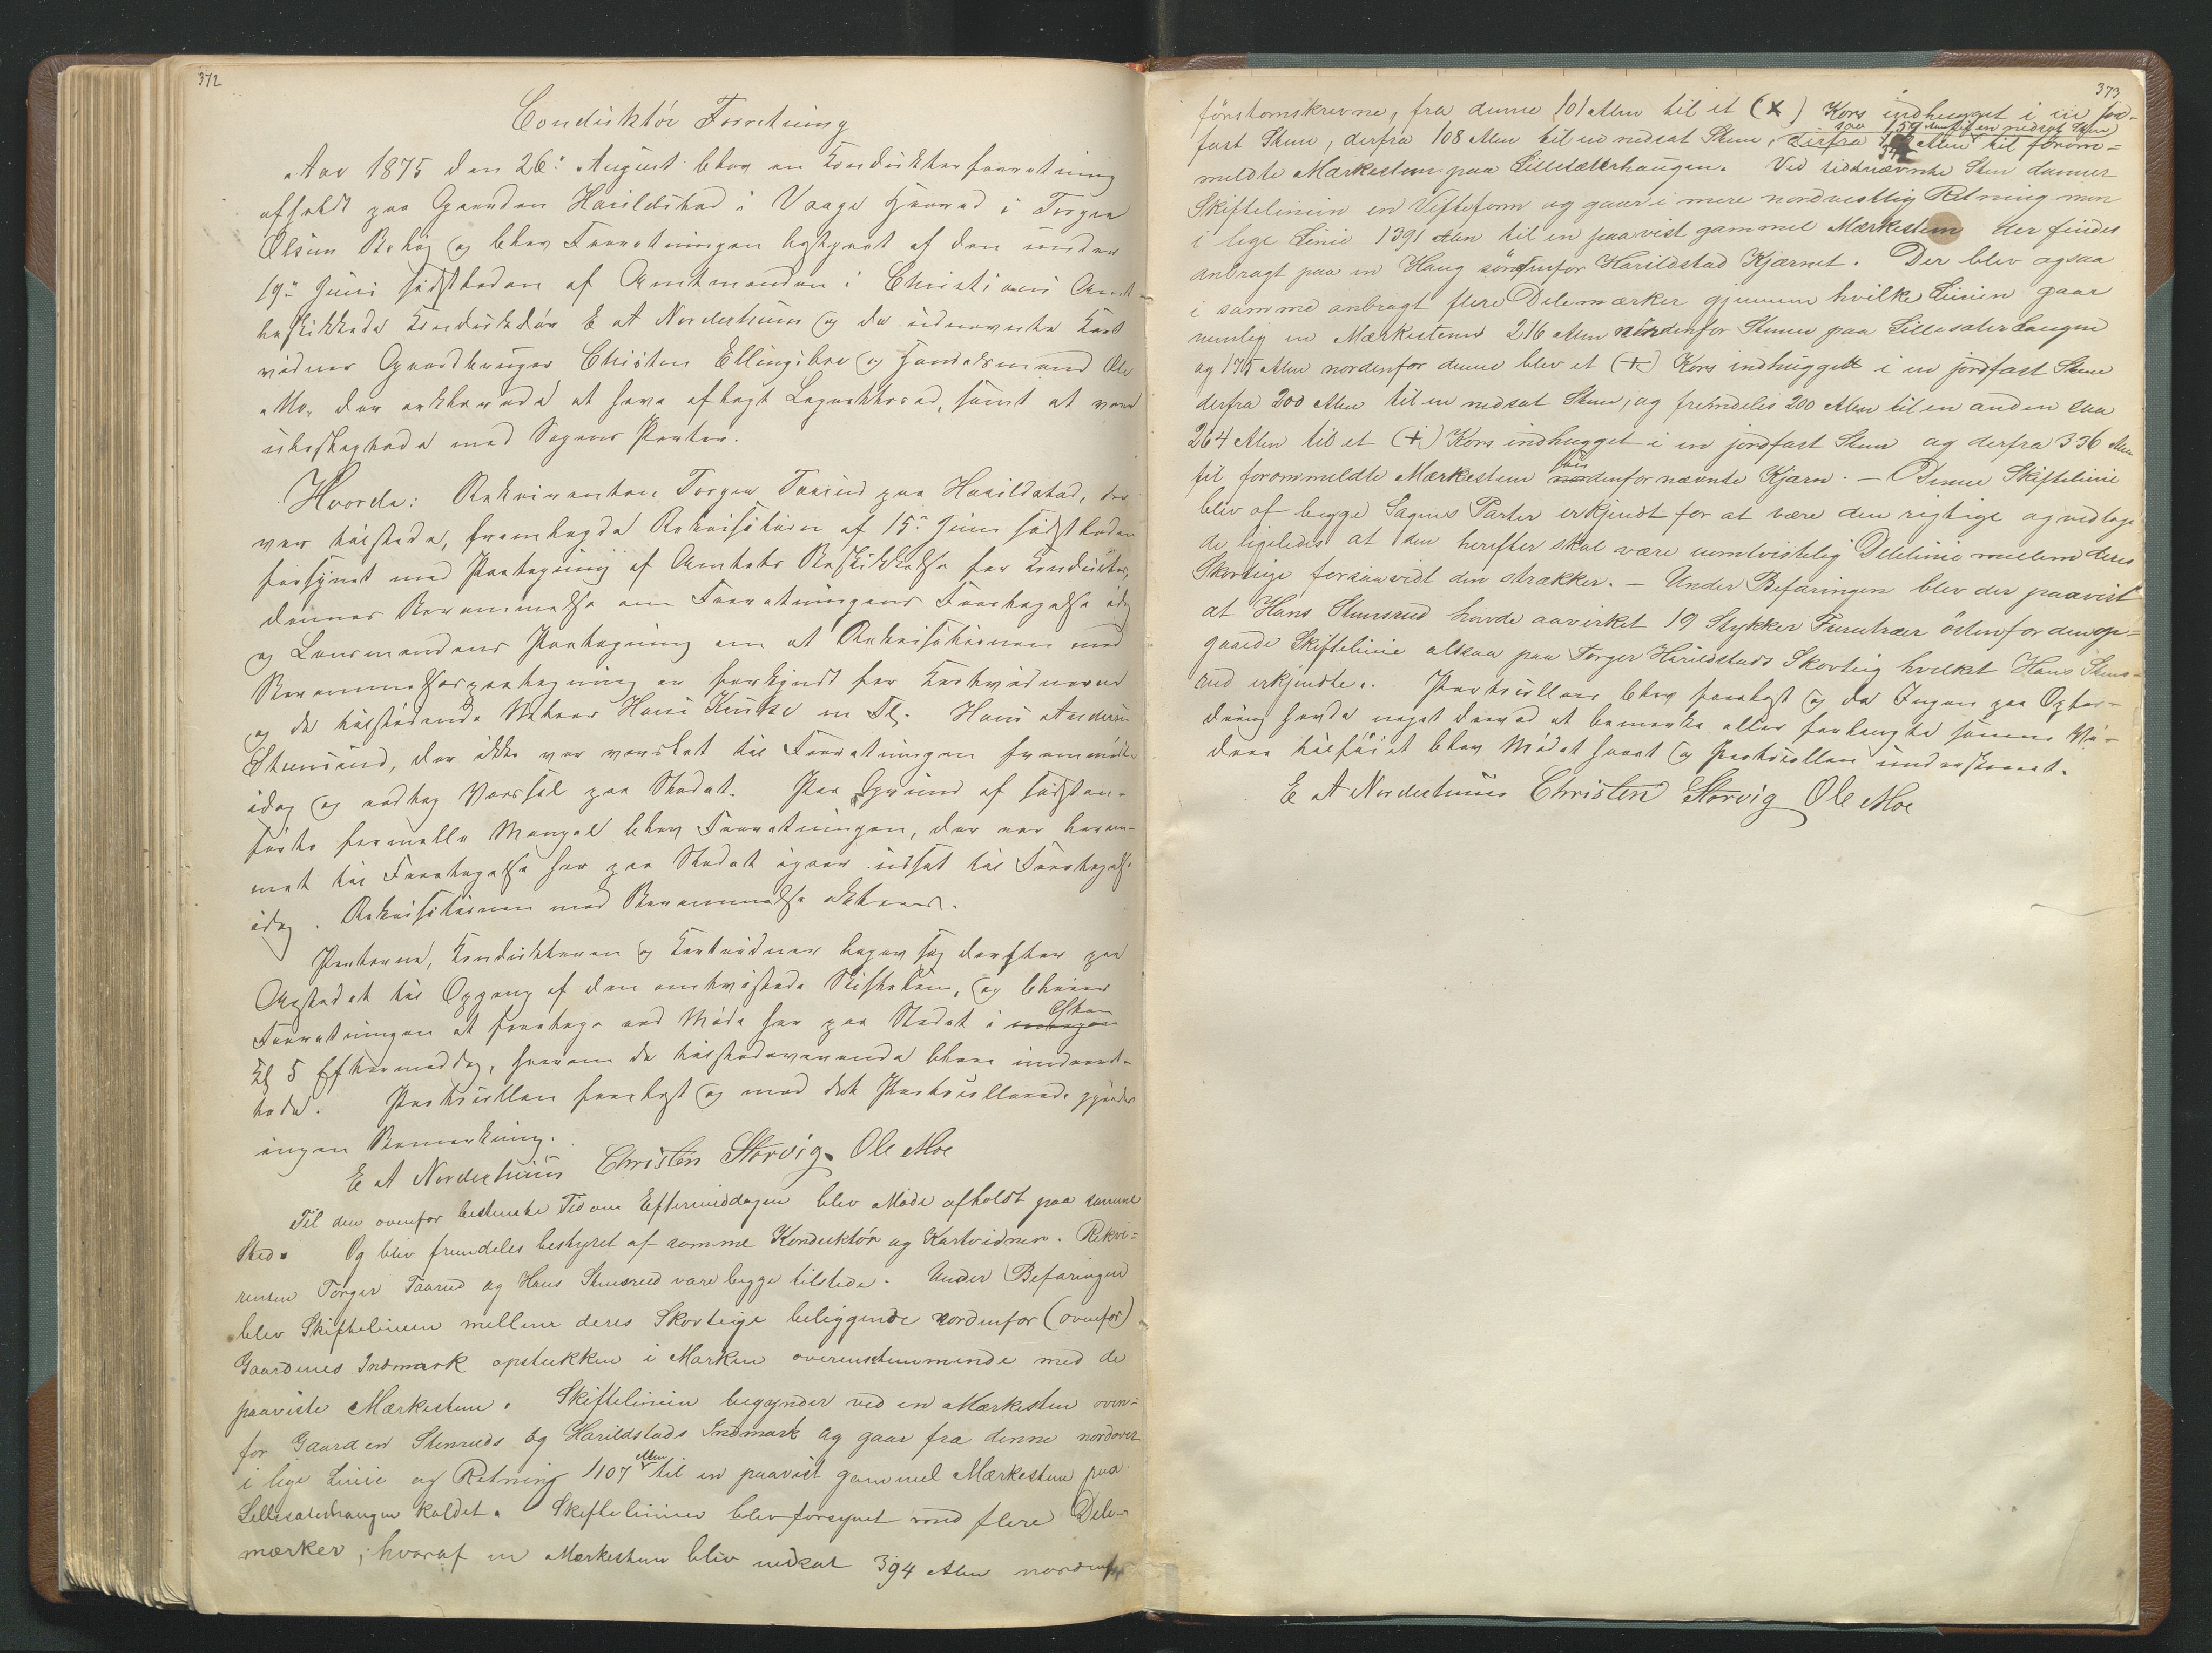 372
Conduktör Forretning
Aar 1875 den 26: August blev en Konduktörforretning
afholdt paa Gaarden Harildstad i Vaage Herred i Torger
Olsens Bolig og blev Forretningen bestyret af den under
19de Juni sidstleden af Amtmanden i Christians Amt
beskikkede Konduktör E A Norderhuus og de udnævnte Kart
vidner Gaardbruger Christen Ellingsbø og Handelsmand Ole
Mo, der erklærede at have aflagt Lagrettesed, samt at være
ubeslegtede med Sagens Parter.
Hvorda: Rekvirenten Torger Taarud paa Harildstad, der
var tilstede, fremlagde Rekvisition af 15de Juni sidstleden
forsynet med Paategning af Amtets Beskikkelse for Konduktör,
dennes Berammelse om Forretningens Foretagelse idag
og Lensmandens Paategning om at Rekvisitionen med
Berammelsespaategning er forkyndt for Kartvidnerne
og de tilstödende Naboer Hans Hans Andersen
Stensrud, der ikke var varslet til Forretningen fremmödte
idag og vedtog Varsel paa Stedet. Paa Grund af sidstan-
förte formelle Mangel blev Forretningen, der var beram-
met til Foretagelse her paa Stedet igaar udsat til Foretagelse
idag. Rekvisitionen med Berammelse akteres.
Parterne, Konduktören og Kartvidner begav sig derefter paa
Aastedet til Opgang af den omtvistede Skiftelinie, og bliver
Forretningen at foretage ved Möde her paa Stedet i Efterm
Kl 5 Eftermiddag, hvorom de tilstedeværende blev underret-
tede. Protocollen forelagt og mod det Protocollerede gjordes
ingen Bemærkning.
E A Norderhuus Christen Storvig. Ole Moe
Til den ovenfor bestemte Tid om Eftermiddagen blev Möde afholdt paa samme
Sted. Og blev fremdeles bestyret af samme Konduktör og Kartvidner. Rekvi=
renten Torger Taarud og Hans Stensrud vare begge tilstede. Under Befaringen
blev Skiftelinien mellem deres Skovteige beliggende nordenfor (ovenfor)
Gaardenes Indmark opstukken i Marken overensstemmende med de
paaviste Mærkestene. Skiftelinien begynder ved en Mærkesten oven=
for Gaarden Stensruds og Harildstads Indmark og gaar fra denne nordover
i lige Linie og Retning 1107 Alen til en paavist gammel Mærkesten paa
Lillesæterhaugen kaldet. Skiftelinien blev forsynet med flere Dele-
mærker, hvoraf en Mærkesten blev nedsat 394 Alen nordenfor
373
förstomskrevne, fra denne 101 Alen til et (x) Kors indhugget i en jord-
saa 159 Alen til en nedsat Sten,
fast Sten, derfra 108 Alen til en nedsat Sten, derfra 34 Alen til forom=
meldte Mærkesten paa Lillesæterhaugen. Ved sidstnævnte Sten danner
Skiftelinien en Vifteform og gaar i mere nordvestlig Retning men
i lige Linie 1391 Alen til en paavist gammel Mærkesten der findes
anbragt paa en Haug söndenfor Harildstad Kjærnet. Der blev ogsaa
i samme anbragt flere Delemærker gjennem hvilke Linien gaar
nemlig en Mærkesten 216 Alen nordenfor Stenen paa Lillesæterhaugen
og 175 Alen nordenfor denne blev et (+) Kors indhugget i en jordfast Sten
derfra 200 Alen til en nedsat Sten, og fremdeles 200 Alen til en anden saa
264 Alen til et (+) Kors indhugget i en jordfast Sten og derfra 336 Alen
til forommeldte Mærkesten söndenfor nævnte Kjærn. — Denne Skiftelinie
blev af begge Sagens Parter erkjendt for at være den rigtige og vedtoge
de ligeledes at den herefter skal være uomtvistelig Delelinie mellem deres
Skovteige forsaavidt den strækker. — Under Befaringen blev der paavist
at Hans Stensrud havde aavirket 19 Stykker Furutræer östenfor den op=
gaaede Skiftelinie altsaa paa Torger Harildstads Skovteig hvilket Hans Stens-
rud erkjendte. Protocollen blev forelagt og da Ingen paa Opfor-
dring havde noget derved at bemærke eller forlangte samme vi-
dere tilföiet blev Mödet hævet og Protocollen underskrevet.
E A Norderhuus Christen Storvig Ole Moe